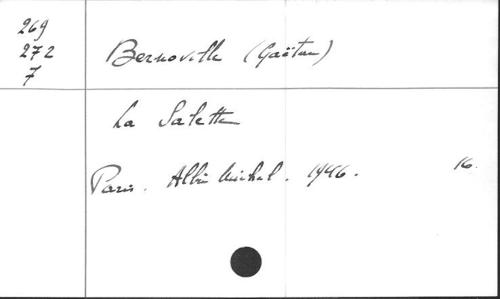 269
272
7
Bernoville (Gaëtan)
La Salette
Paris. Albin Michel. 1946. 16.